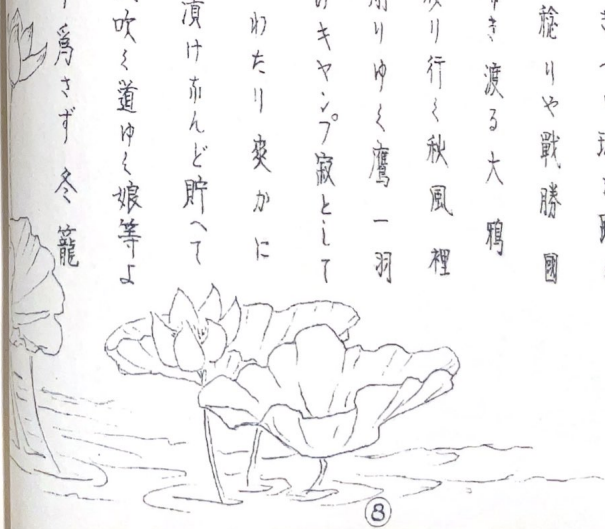 稔りや戰勝國
き渡る大鴉
り行く秋風裡
りゆく鷹一羽
キャンプ寂として
わたり爽かに
漬けあんど貯へて
吹く道ゆく娘等よ
爲さず冬籠
8